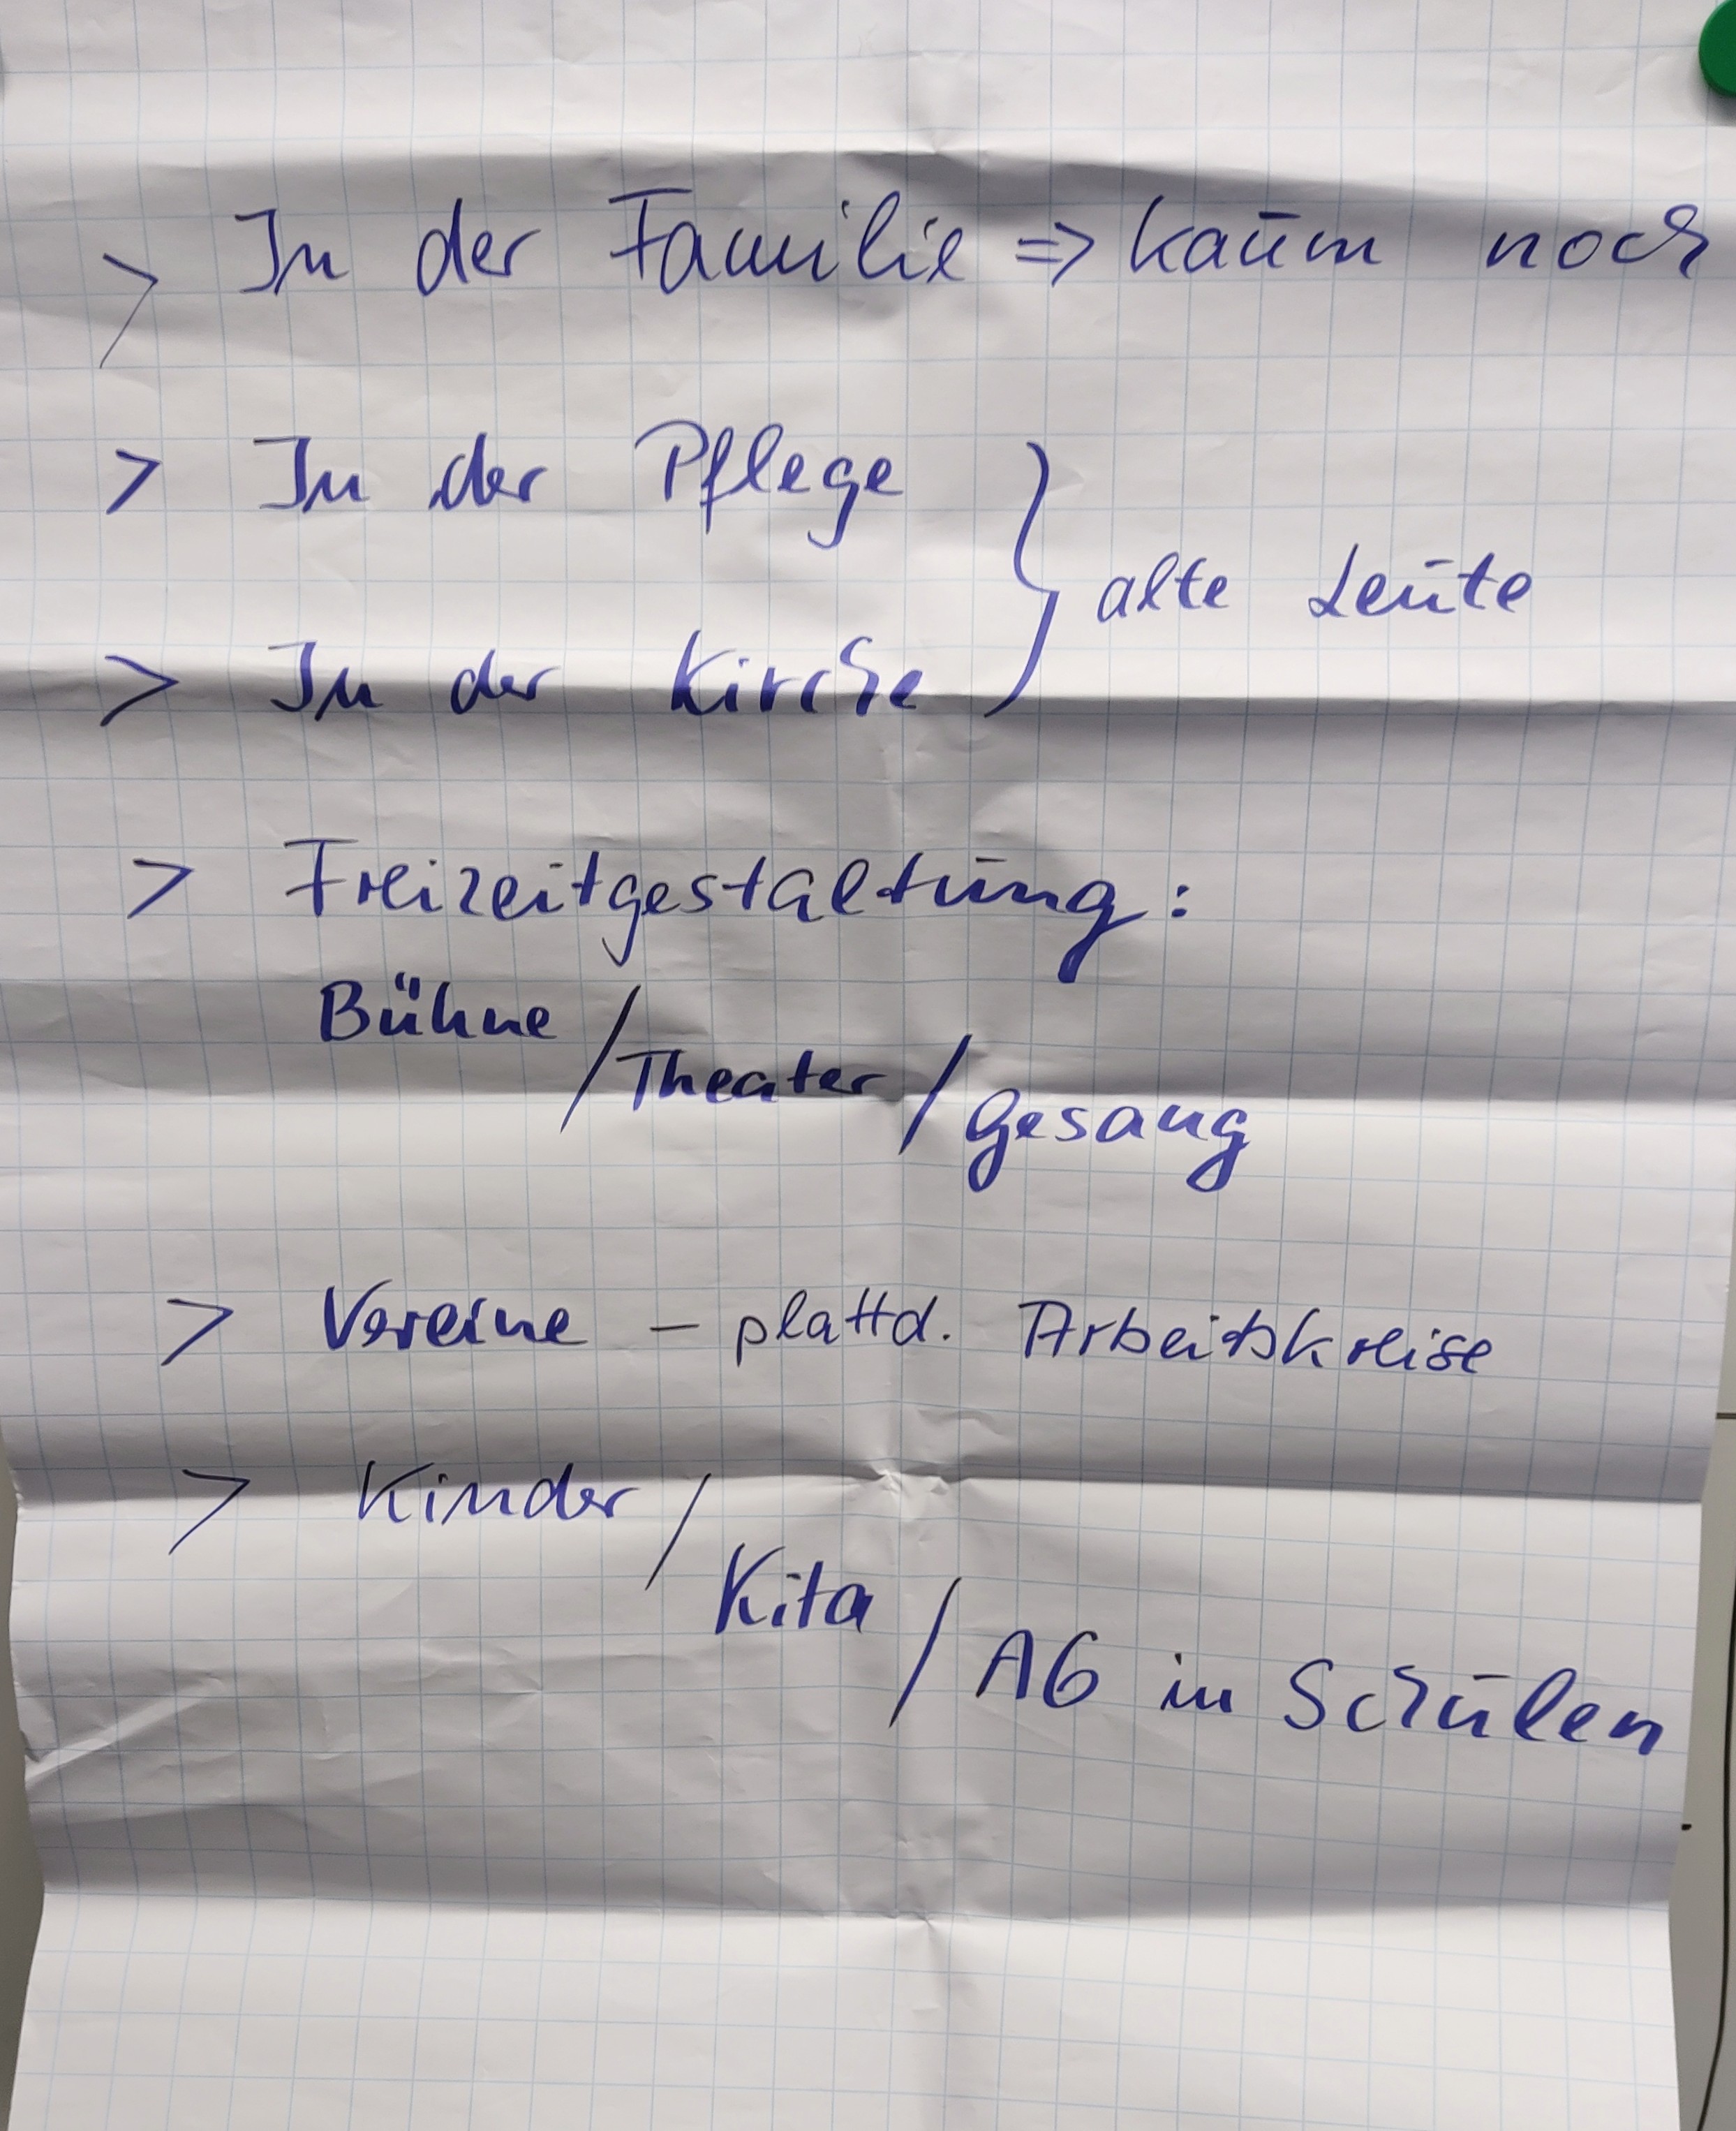 > In der Familie => kaum noch
> In der Pflege
} alte Leute
> In der Kirche
> Freizeitgestaltung:
Bühne / Theater / Gesang
> Vereine – plattd. Arbeitskreise
> Kinder / Kita / AG in Schulen